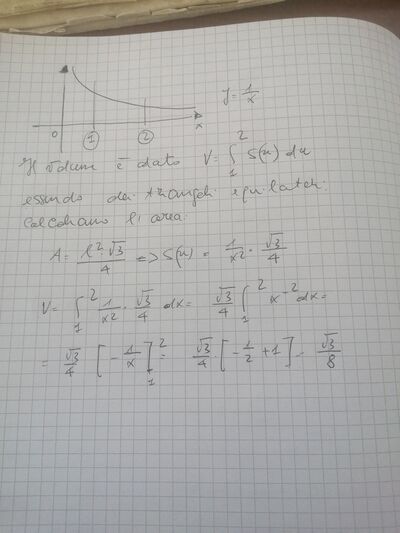 y = 1/x
0 1 2 x
Il volume è dato V = ∫₁² S(x) dx
essendo dei triangoli equilateri
calcoliamo l'area:
A = l²·√3/4 => S(x) = 1/x² · √3/4
V = ∫₁² 1/x² · √3/4 dx = √3/4 ∫₁² x⁻² dx =
= √3/4 [-1/x]₁² = √3/4 · [-1/2 + 1] = √3/8